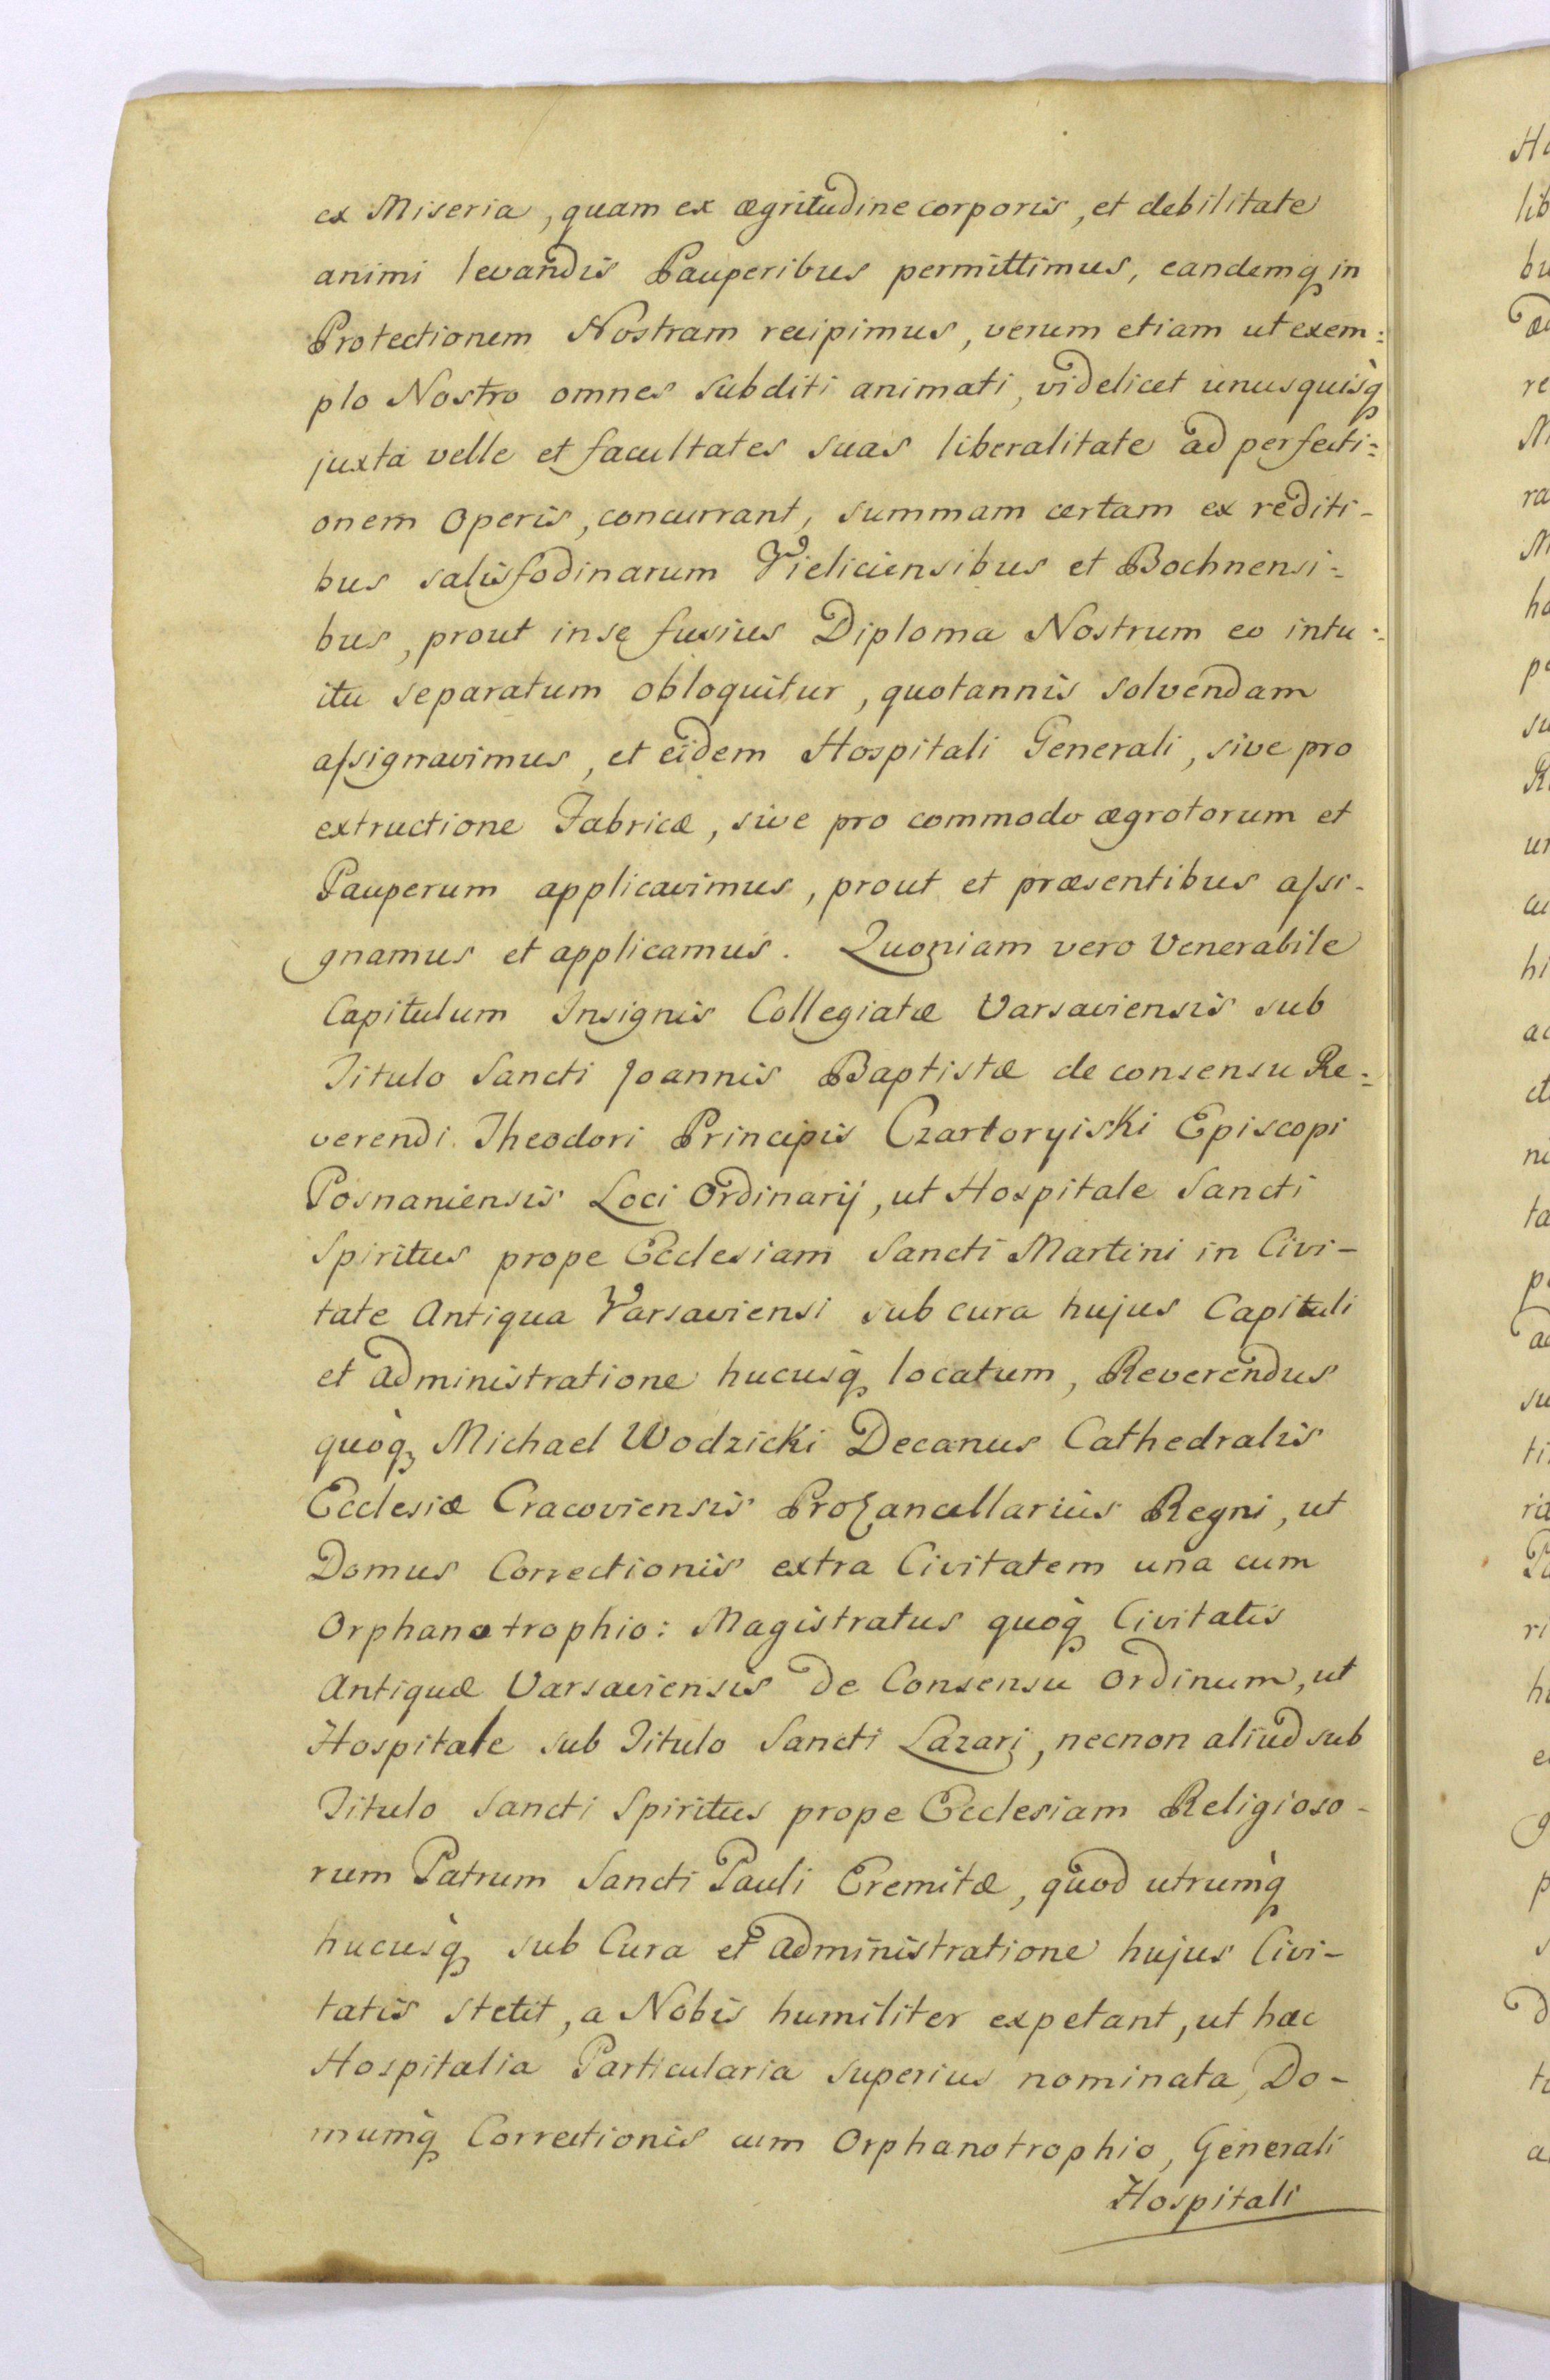 ex Miseria, quam ex ægritudine corporis, et debilitate
animi levandis Pauperibus permittimus, eandemq̨ in
Protectionem Nostram recipimus, verum etiam ut exem:
plo Nostro omnes subditi animati, videlicet unusquisq̨
juxta velle et facultates suas liberalitate ad perfecti=
onem Operis, concurrant, summam certam ex rediti-
bus salisfodinarum Vieliciensibus et Bochnensi=
bus, prout in se fusius Diploma Nostrum eo intu:
itu separatum obloquitur, quotannis solvendam
aſsignavimus, et eidem Hospitali Generali, sive pro
extructione Fabricæ, sive pro commodo ægrotorum et
Pauperum applicavimus, prout et præsentibus aſsi-
gnamus et applicamus. Quoniam vero Venerabile
Capitulum Insignis Collegiatæ Varsaviensis sub
Titulo Sancti Joannis Baptistæ de consensu Re=
verendi Theodori Principis Czartoryiski Episcopi
Posnaniensis Loci Ordinarij, ut Hospitale Sancti
Spiritus prope Ecclesiam Sancti Martini in Civi-
tate Antiqua Varsaviensi sub cura hujus Capituli
et administratione hucusq̨ locatum, Reverendus
quoq̨ Michael Wodzicki Decanus Cathedralis
Ecclesiæ Cracoviensis ProCancellarius Regni, ut
Domus Correctionis extra Civitatem una cum
Orphanotrophio: Magistratus quoq̨ Civitatis
Antiquæ Varsaviensis de Consensu Ordinum, ut
Hospitale sub Titulo Sancti Lazari, necnon aliud sub
Titulo Sancti Spiritus prope Ecclesiam Religioso-
rum Patrum Sancti Pauli Eremitæ, quod utrumq̨
hucusq̨ sub Cura et administratione hujus Civi-
tatis stetit, a Nobis humiliter expetant, ut hæc
Hospitalia Particularia superius nominata, Do-
mumq̨ Correctionis cum Orphanotrophio, Generali
Hospitali